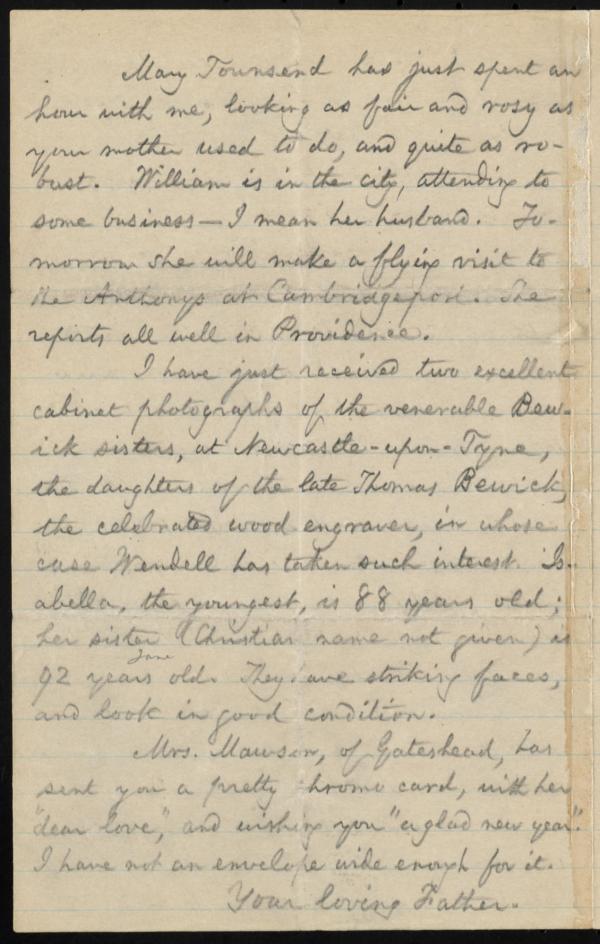 Mary Townsend has just spent an
hour with me, looking as fair and rosy as
your mother used to do, and quite as ro-
bust. William is in the city, attending to
some business — I mean her husband. To-
morrow she will make a flying visit to
the Anthonys at Cambridgeport. She
reports all well in Providence.
I have just received two excellent
cabinet photographs of the venerable Bew-
ick sisters, at Newcastle-upon-Tyne,
the daughters of the late Thomas Bewick,
the celebrated wood engraver, in whose
case Wendell has taken such interest. Is-
abella, the youngest, is 88 years old;
her sister (Christian name not given) is
Jane
92 years old. They have striking faces,
and look in good condition.
Mrs. Mawson, of Gateshead, has
sent you a pretty chromo card, with her
"dear love," and wishing you "a glad new year."
I have not an envelope wide enough for it.
Your loving Father.